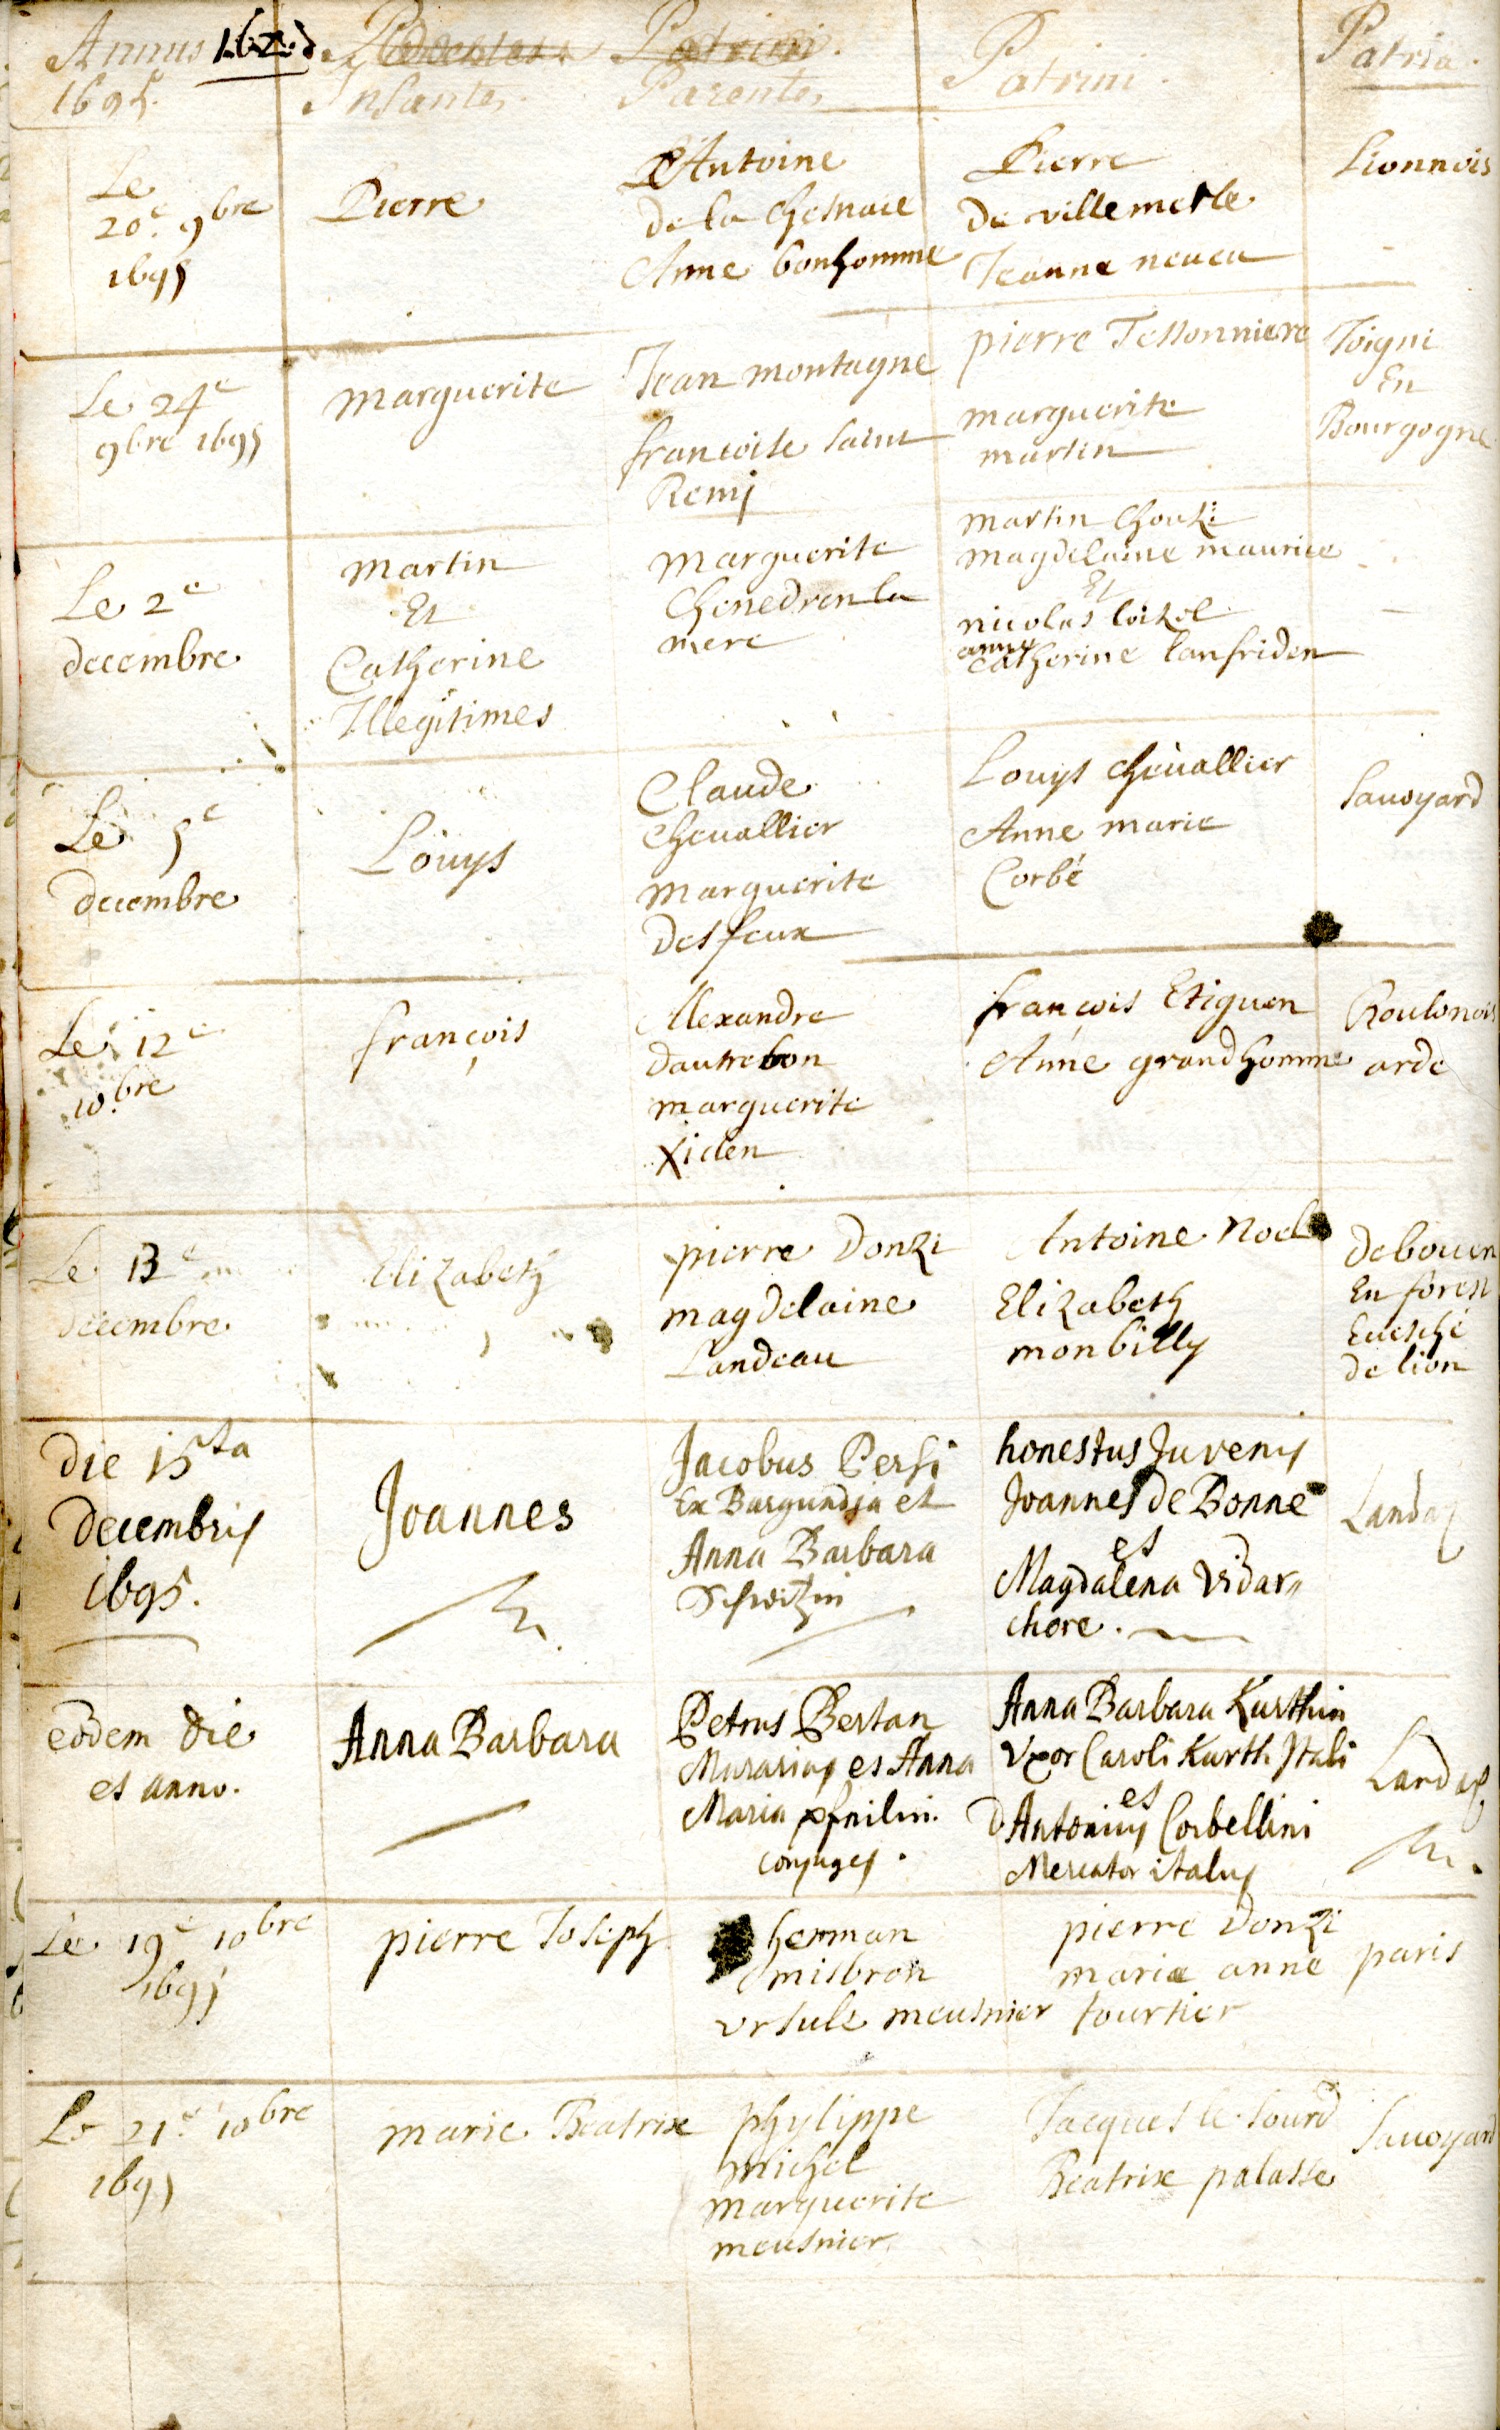 Annus
1695.
Infantes
Parentes
Patrini.
Patria.
Le
20e. 9bre
1695
Pierre
Antoine
de la chesnaie
Anne bonhomme
Pierre
de villemesle
Jeanne neveu
Lionnois
Le 24e
9bre 1695
marguerite
Jean montagne
francoise saint
Remj
pierre Tessonniere
marguerite
martin
Joigni
En
Bourgogne
Le 2e
decembre
martin
Et
Catherine
Illegitimes
marguerite
Chenedron la
mere
martin
magdelaine maurice
Et
nicolas loisel
catherine lanfriden
Le 5e
decembre
Louys
Claude
Chevallier
marguerite
desfeux
Louys chevallier
Anne marie
Corbé
Savoyard
Le 12e
10.bre
françois
Alexandre
dautrebon
marguerite
Xiden
françois Etiguen
Anne grandhomme
arde
Le 13e
decembre
Elizabeth
pierre Donzi
magdelaine
Landeau
Antoine Noel
Elizabeth
monbilly
de bouen
En forest
Evesché
de lion
Die 15ta
Decembris
1695.
Joannes
Jacobus Persi
Ex Burgundia et
Anna Barbara
Schweitzin
honestus Juvenis
Joannes de Bonne
et
Magdalena Vidar=
chore.
Landau
eodem die
et anno.
Anna Barbara
Petrus Bertan
Murarius et Anna
Maria
conjuges.
Anna Barbara Kurthin
Uxor Caroli Kurth Itali
et
D Antonius Corbellini
Mercator italus
Landau
Le 19e 10bre
1695
pierre Joseph
herman
misbron
ursule meusnier
pierre Donzi
marie anne
fourtier
paris
Le 21e 10bre
1695
marie Beatrix
phylippe
michel
marguerite
meusnier
Jacques le sourd
Beatrix palasse
Savoyard